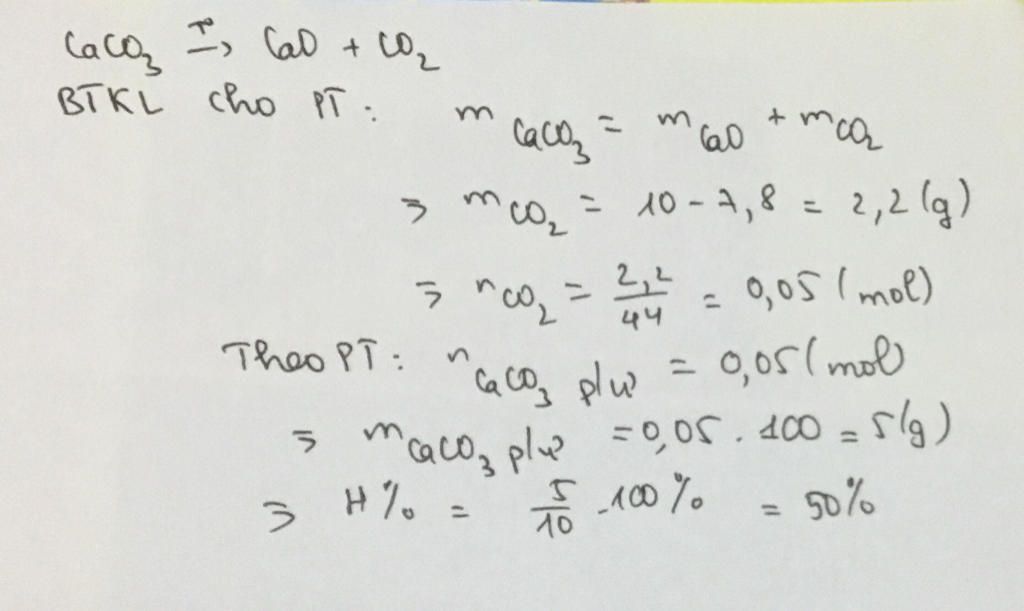 CaCO₃ →(t°) CaO + CO₂
BTKL cho PT : m CaCO₃ = m CaO + m CO₂
⇒ m CO₂ = 10 - 7,8 = 2,2 (g)
⇒ n CO₂ = 2,2/44 = 0,05 (mol)
Theo PT : n CaCO₃ p/ư = 0,05 (mol)
⇒ m CaCO₃ p/ư = 0,05 . 100 = 5 (g)
⇒ H% = 5/10 . 100% = 50%